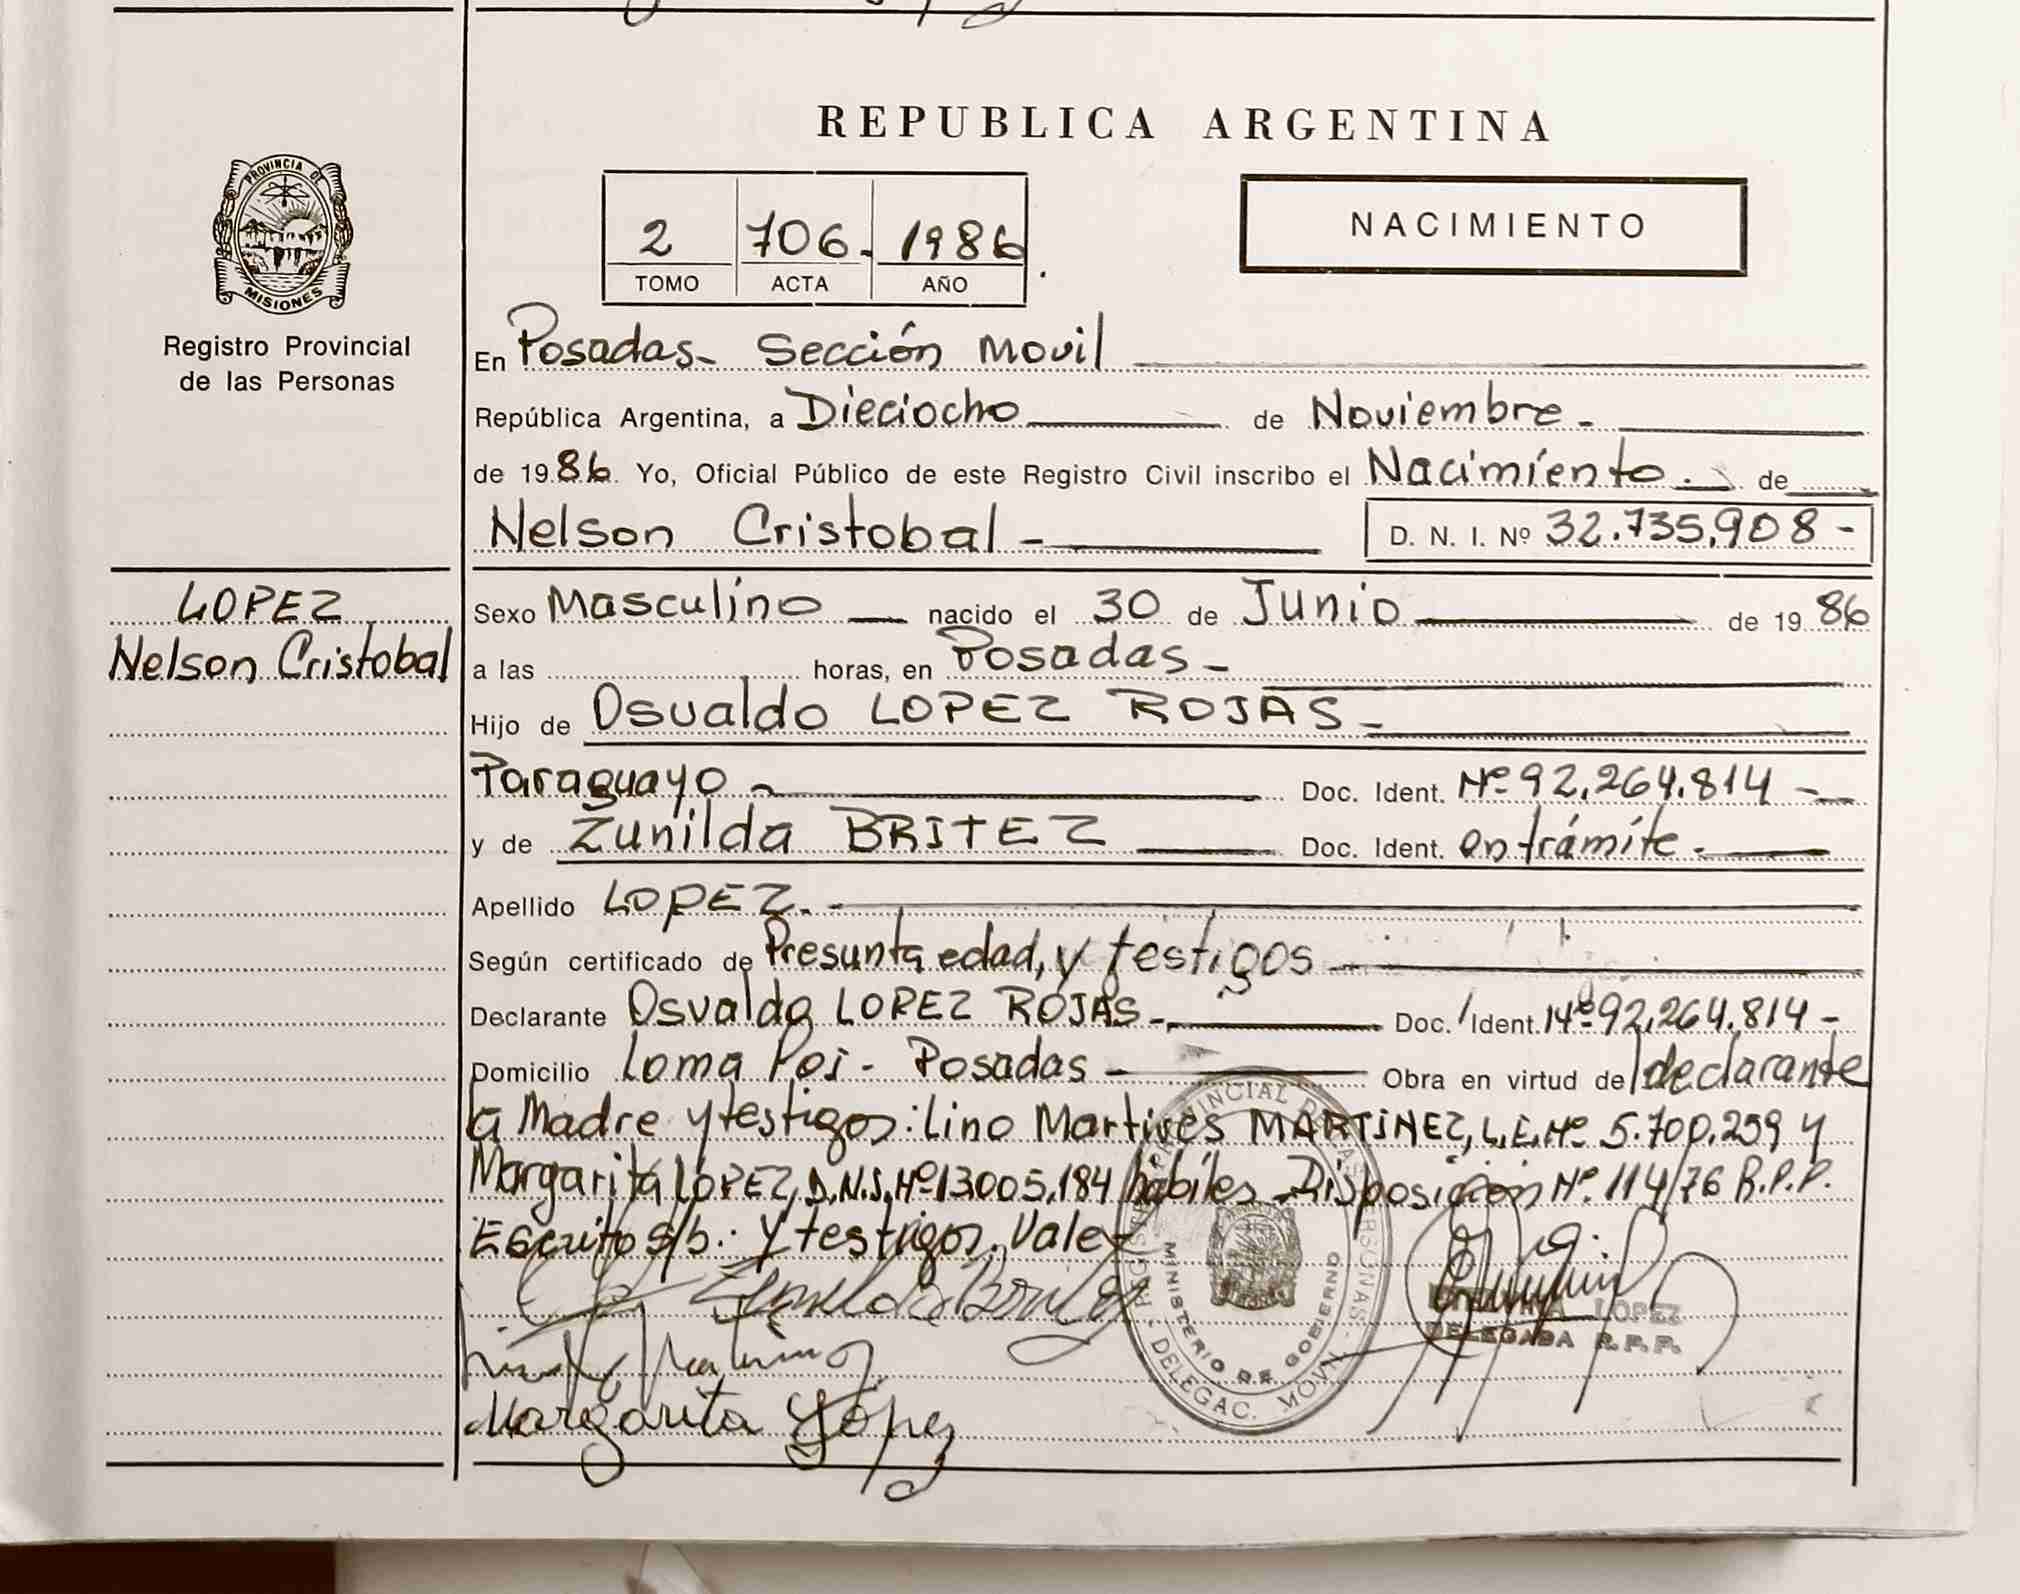 REPUBLICA ARGENTINA
PROVINCIA DE
MISIONES
Registro Provincial
de las Personas
2 706. 1986
TOMO ACTA AÑO
NACIMIENTO
En Posadas - Sección Movil
República Argentina, a Dieciocho de Noviembre -
de 1986. Yo, Oficial Público de este Registro Civil inscribo el Nacimiento. de
Nelson Cristobal - D. N. I. Nº 32.735.908 -
LOPEZ
Nelson Cristobal
Sexo Masculino nacido el 30 de Junio de 1986
a las horas, en Posadas -
Hijo de Osvaldo LOPEZ ROJAS -
Paraguayo - Doc. Ident. Nº 92.264.814 -
y de Zunilda BRITEZ Doc. Ident. en trámite -
Apellido LOPEZ. -
Según certificado de Presunta edad, y testigos
Declarante Osvaldo LOPEZ ROJAS - Doc. Ident. Nº 92.264.814 -
Domicilio Loma Poi - Posadas - Obra en virtud de declarante
la Madre y testigos: Lino Martires MARTINEZ, L.E. Nº 5.700.259 y
Margarita LOPEZ, D.N.I. Nº 13.005.184 habiles - Disposición Nº 114/76 R.P.P.
Escrito s/b: y testigos. Vale
REGISTRO PROVINCIAL DE LAS PERSONAS
MINISTERIO DE GOBIERNO
DELEGAC. MOVIL
LOPEZ
DELEGADA R.P.P.
Margarita López